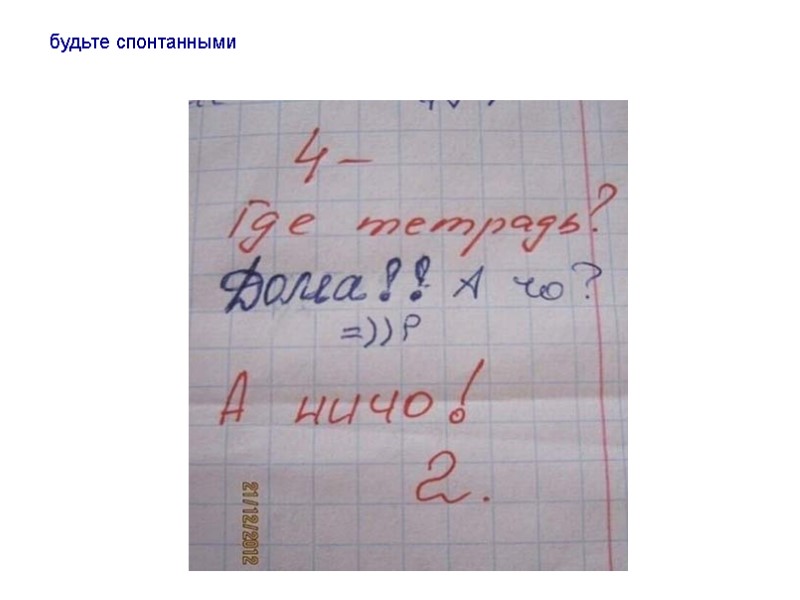 будьте спонтанными
4-
Где тетрадь?
Дома!! А чо?
=))P
А ничо!
2.
21/12/2012